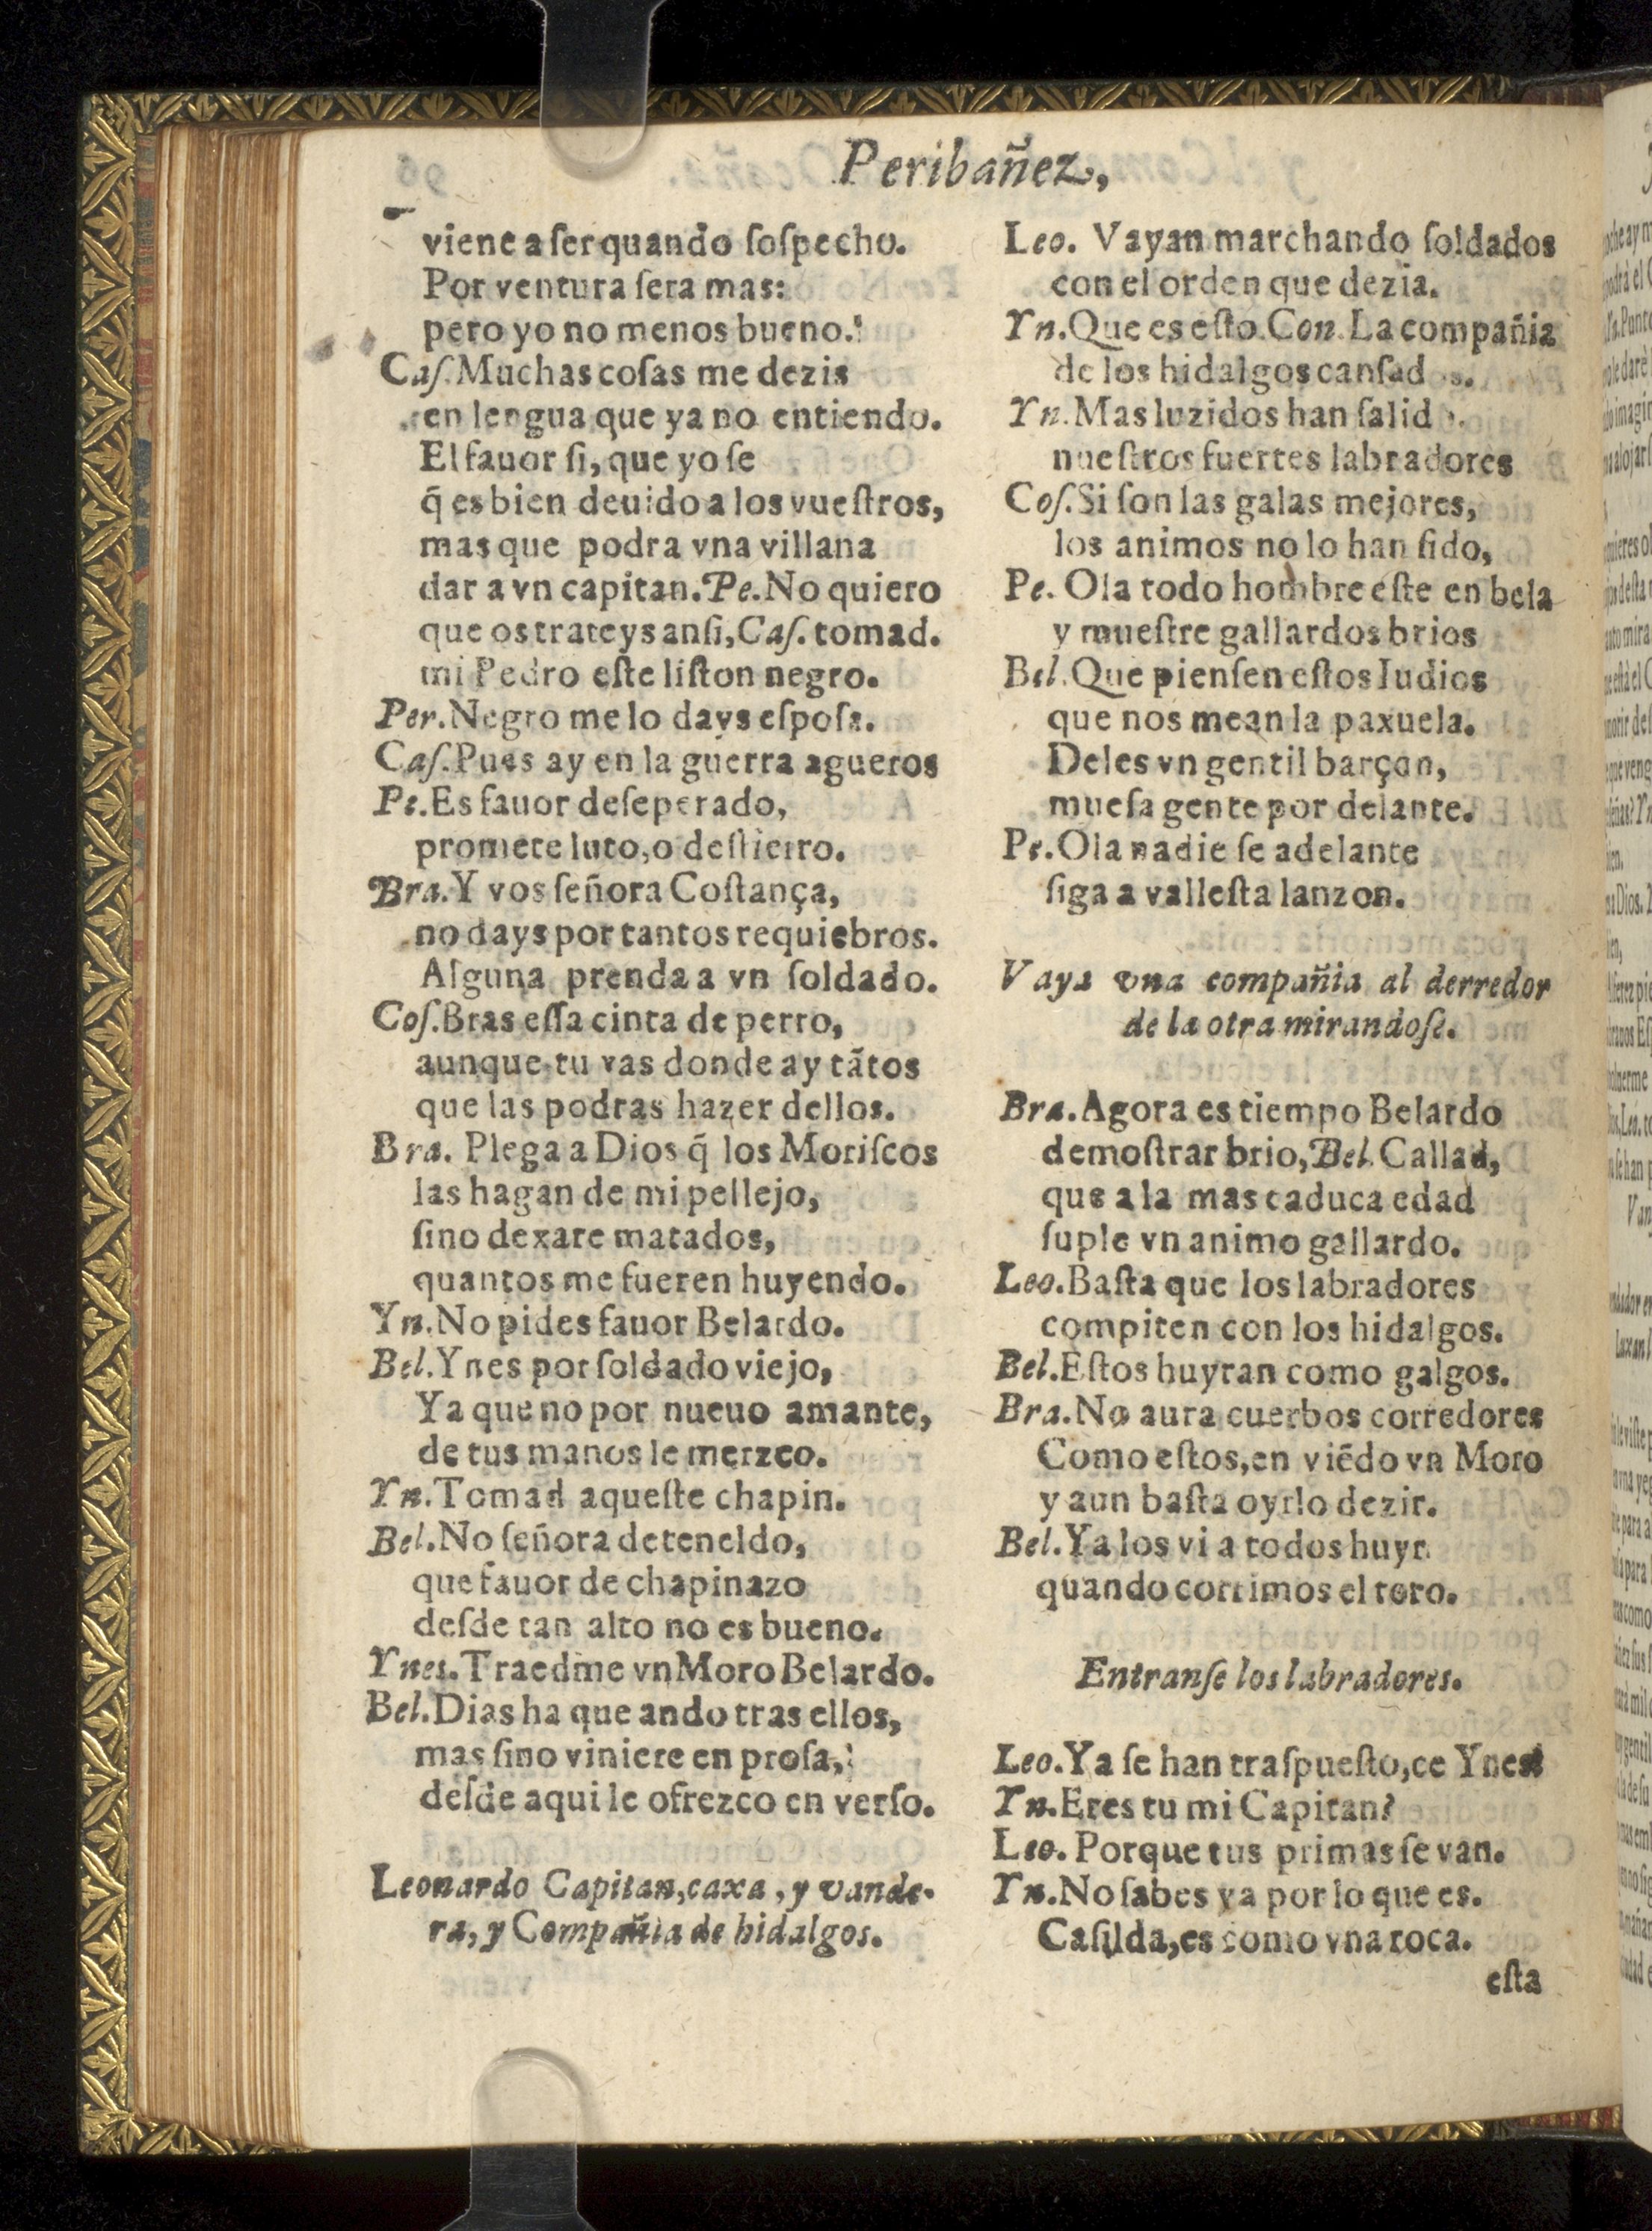 Peribañez,
viene a ser quando sospecho.
Por ventura sera mas:
pero yo no menos bueno.
Cas. Muchas cosas me dezis
en lengua que ya no entiendo.
El fauor si, que yo se
q̃ es bien deuido a los vuestros,
mas que podra vna villana
dar a vn capitan. Pe. No quiero
que os trateys ansi, Cas. tomad.
mi Pedro este liston negro.
Per. Negro me lo days esposa.
Cas. Pues ay en la guerra agueros
Pe. Es fauor deseperado,
promete luto, o destierro.
Bra. Y vos señora Costança,
no days por tantos requiebros.
Alguna prenda a vn soldado.
Cos. Bras essa cinta de perro,
aunque tu vas donde ay tãtos
que las podras hazer dellos.
Bra. Plega a Dios q̃ los Moriscos
las hagan de mi pellejo,
sino dexare matados,
quantos me fueren huyendo.
Yn. No pides fauor Belardo.
Bel. Ynes por soldado viejo,
Ya que no por nueuo amante,
de tus manos le merzco.
Yn. Tomad aqueste chapin.
Bel. No señora deteneldo,
que fauor de chapinazo
desde tan alto no es bueno.
Ynes. Traedme vn Moro Belardo.
Bel. Dias ha que ando tras ellos,
mas sino viniere en prosa,
desde aqui le ofrezco en verso.
Leonardo Capitan, caxa, y vande-
ra, y Compañia de hidalgos.
Leo. Vayan marchando soldados
con el orden que dezia.
Yn. Que es esto. Con. La compañia
de los hidalgos cansados.
Yn. Mas luzidos han salido.
nuestros fuertes labradores
Cos. Si son las galas mejores,
los animos no lo han sido,
Pe. Ola todo hombre este en bela
y muestre gallardos brios
Bel. Que piensen estos Iudios
que nos mean la paxuela.
Deles vn gentil barçon,
muesa gente por delante.
Pe. Ola nadie se adelante
siga a vallesta lanzon.
Vaya vna compañia al derredor
de la otra mirandose.
Bra. Agora es tiempo Belardo
demostrar brio, Bel. Callad,
que a la mas caduca edad
suple vn animo gallardo.
Leo. Basta que los labradores
compiten con los hidalgos.
Bel. Estos huyran como galgos.
Bra. No aura cuerbos corredores
Como estos, en viẽdo vn Moro
y aun basta oyrlo dezir.
Bel. Ya los vi a todos huyr.
quando corrimos el toro.
Entranse los labradores.
Leo. Ya se han traspuesto, ce Ynes
Yn. Eres tu mi Capitan?
Leo. Porque tus primas se van.
Yn. No sabes ya por lo que es.
Casilda, es como vna roca.
esta